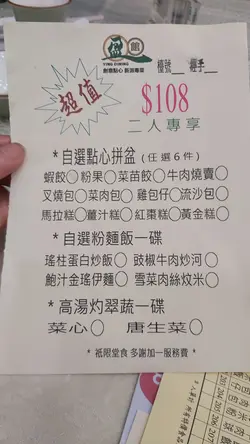 盈館
YING DINING
創意點心 飯游粵菜
檯號__ 經手__
超值
$108
二人專享
*自選點心拼盆(任選6件)
蝦餃○粉果○菜苗餃○牛肉燒賣○
叉燒包○菜肉包○雞包仔○流沙包○
馬拉糕○薑汁糕○紅棗糕○黃金糕○
*自選粉麵飯一碟
瑤柱蛋白炒飯○豉椒牛肉炒河○
鮑汁金瑤伊麵○雪菜肉絲炆米○
*高湯灼翠蔬一碟
菜心○ 唐生菜○
* 祇限堂食 多謝加一服務費 *